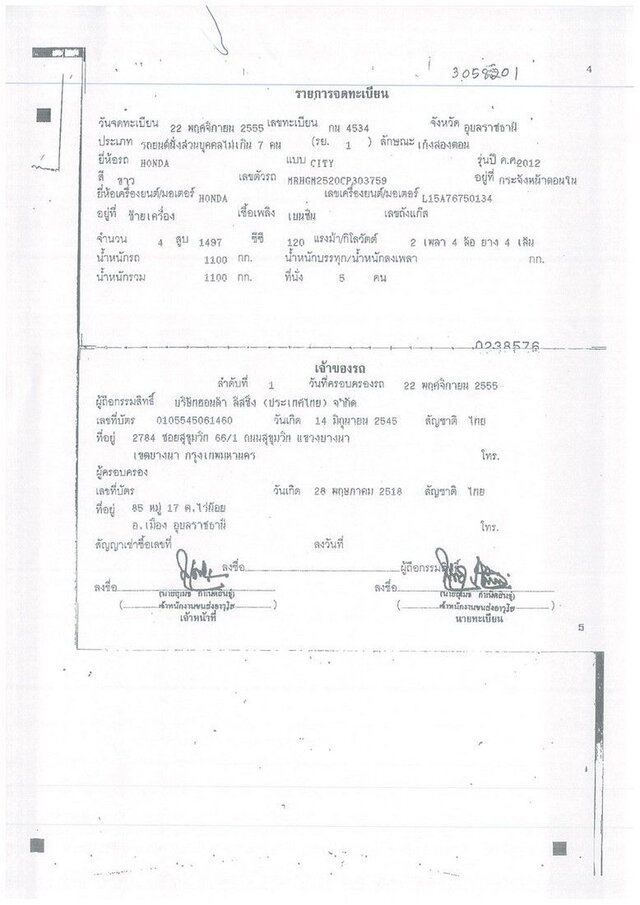 3058201
4
รายการจดทะเบียน
วันจดทะเบียน 22 พฤศจิกายน 2555 เลขทะเบียน กน 4534 จังหวัด อุบลราชธานี
ประเภท รถยนต์นั่งส่วนบุคคลไม่เกิน 7 คน (รย. 1 ) ลักษณะ เก๋งสองตอน
ยี่ห้อรถ HONDA แบบ CITY รุ่นปี ค.ศ.2012
สี ขาว เลขตัวรถ MRHGM2520CP303759 อยู่ที่ กระจังหน้าตอนใน
ยี่ห้อเครื่องยนต์/มอเตอร์ HONDA เลขเครื่องยนต์/มอเตอร์ L15A76750134
อยู่ที่ ซ้ายเครื่อง เชื้อเพลิง เบนซิน เลขถังแก๊ส
จำนวน 4 สูบ 1497 ซีซี 120 แรงม้า/กิโลวัตต์ 2 เพลา 4 ล้อ ยาง 4 เส้น
น้ำหนักรถ 1100 กก. น้ำหนักบรรทุก/น้ำหนักลงเพลา กก.
น้ำหนักรวม 1100 กก. ที่นั่ง 5 คน
0238576
เจ้าของรถ
ลำดับที่ 1 วันที่ครอบครองรถ 22 พฤศจิกายน 2555
ผู้ถือกรรมสิทธิ์ บริษัทฮอนด้า ลีสซิ่ง (ประเทศไทย) จำกัด
เลขที่บัตร 0105545061460 วันเกิด 14 มิถุนายน 2545 สัญชาติ ไทย
ที่อยู่ 2784 ซอยสุขุมวิท 66/1 ถนนสุขุมวิท แขวงบางนา
เขตบางนา กรุงเทพมหานคร โทร.
ผู้ครอบครอง
เลขที่บัตร วันเกิด 28 พฤษภาคม 2518 สัญชาติ ไทย
ที่อยู่ 85 หมู่ 17 ต.ไร่น้อย
อ.เมือง อุบลราชธานี โทร.
สัญญาเช่าซื้อเลขที่ ลงวันที่
ลงชื่อ ผู้ถือกรรมสิทธิ์
ลงชื่อ ลงชื่อ
( เจ้าพนักงานขนส่งอาวุโส ) ( เจ้าพนักงานขนส่งอาวุโส )
เจ้าหน้าที่ นายทะเบียน
5